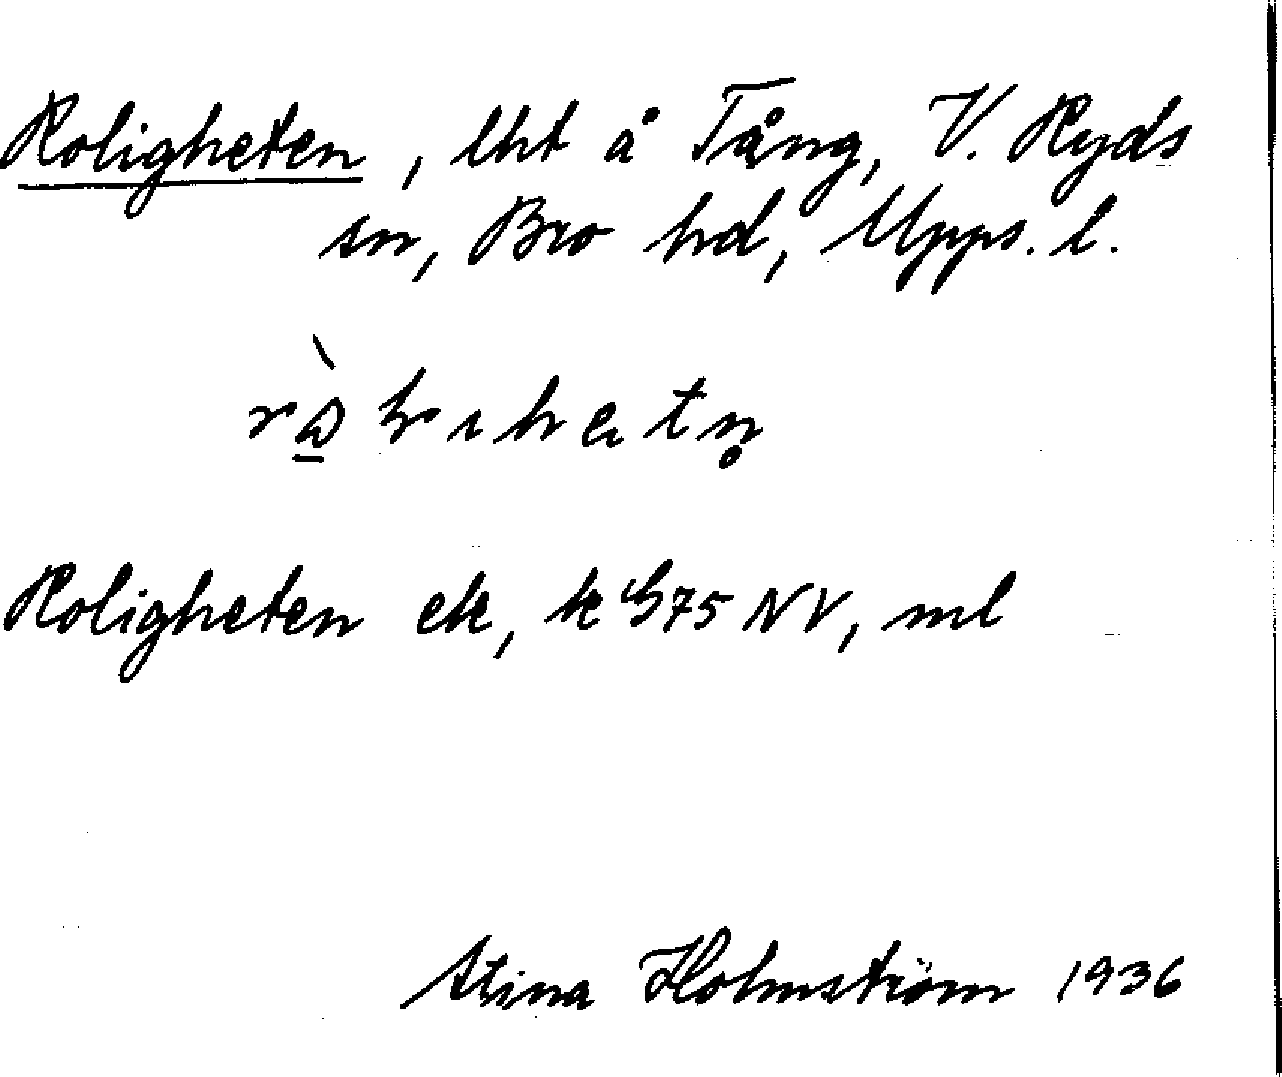 Roligheten, lht å Tång, V. Ryds
sn, Bro hd, Upps. l.
Roligheten ek, k S75 NV, ml
Stina Holmström 1936